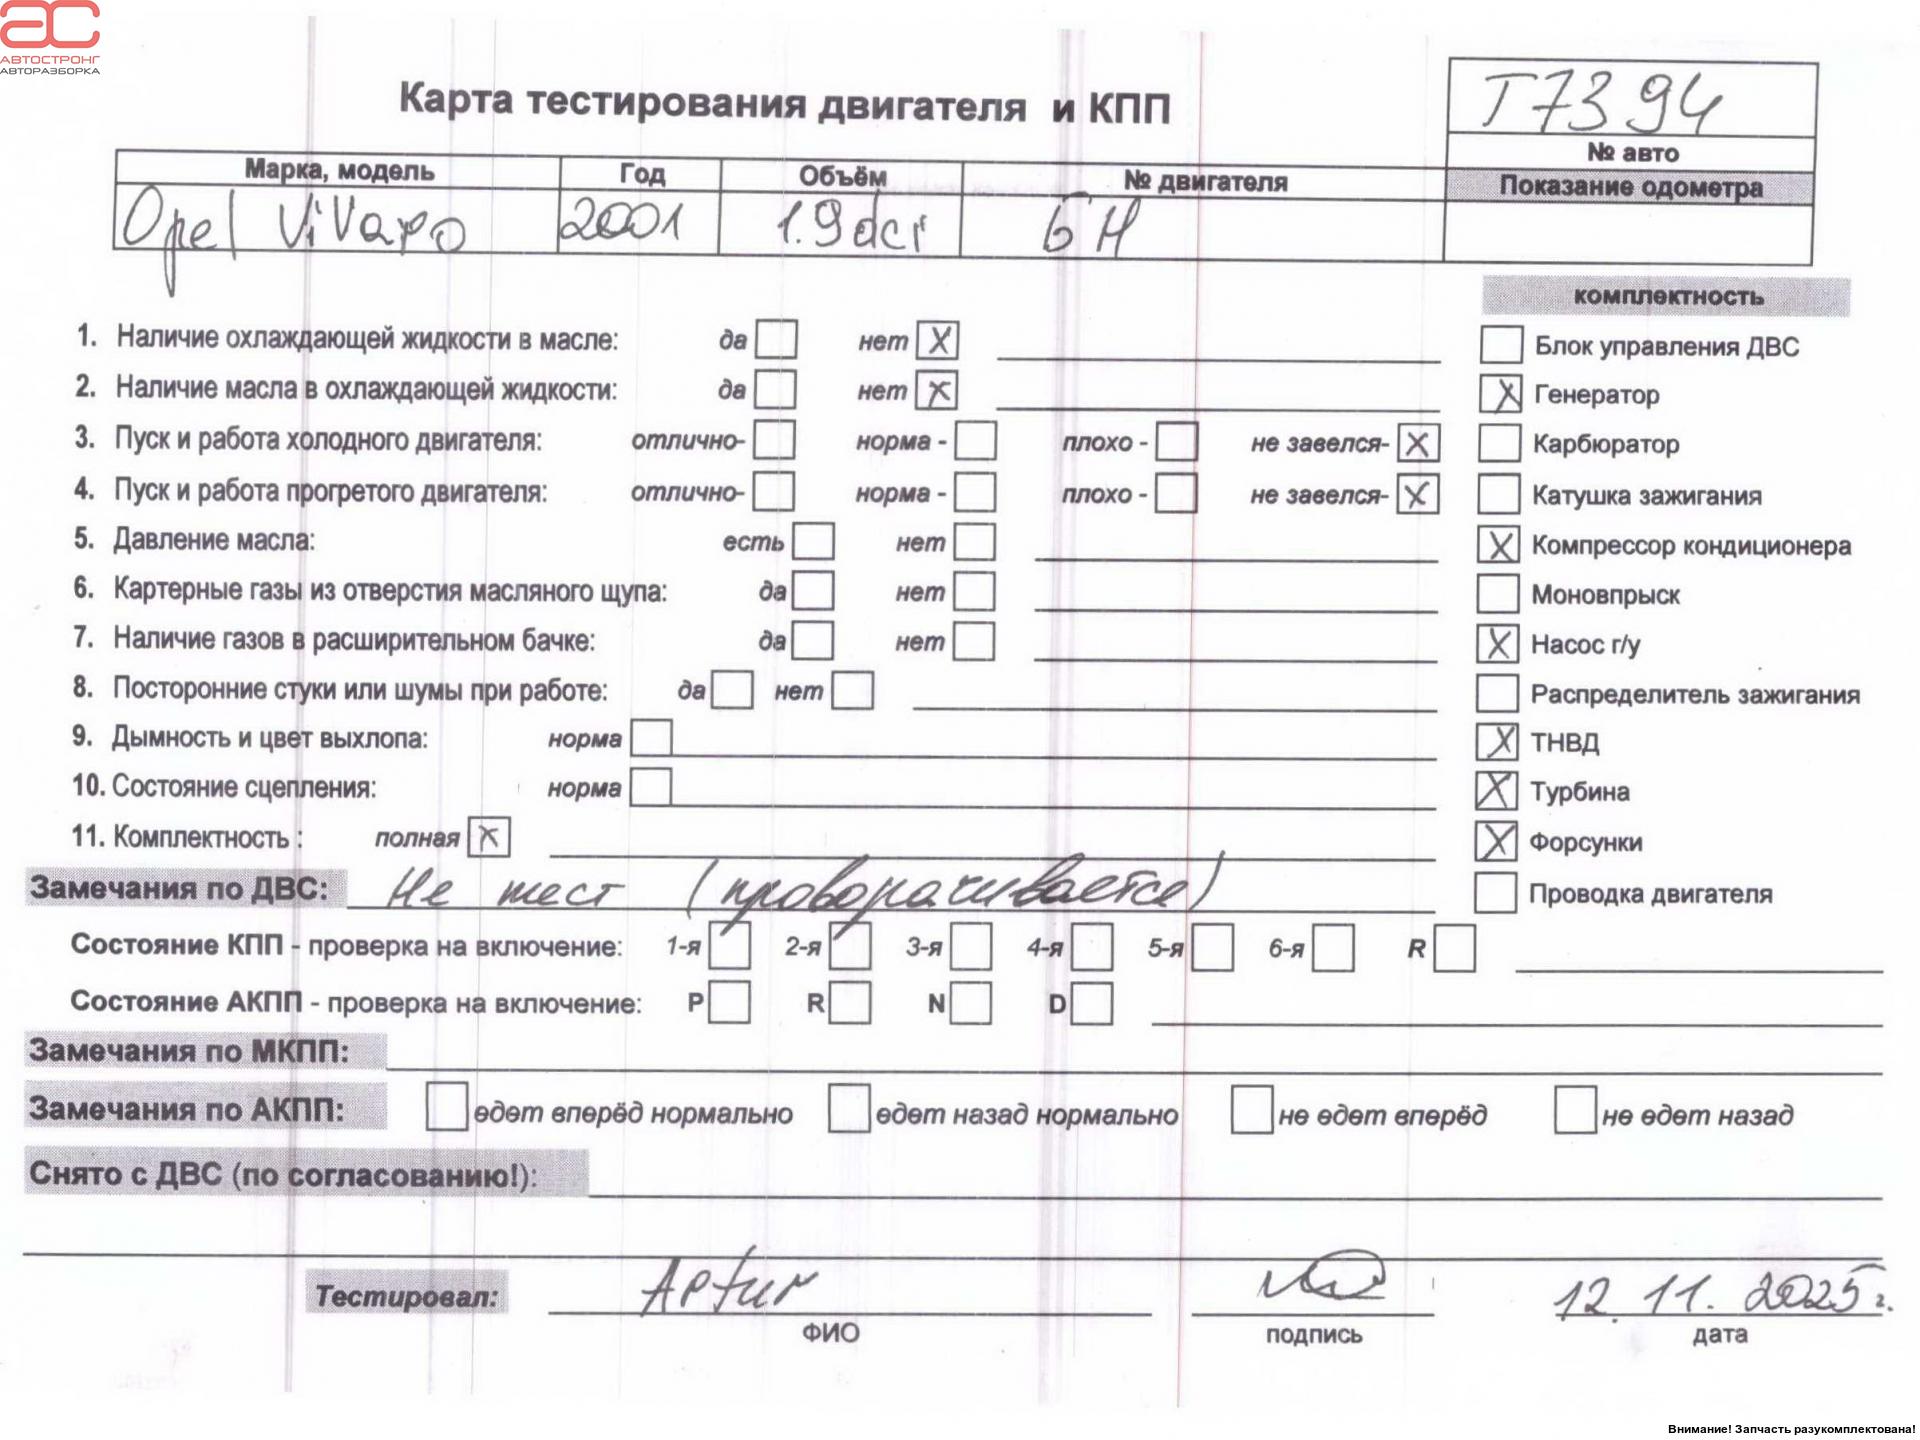 АС
АВТОСТРОНГ
АВТОРАЗБОРКА
Карта тестирования двигателя и КПП
T7394
№ авто
Марка, модель Год Объём № двигателя Показание одометра
Opel ViVaro 2001 1.9dci БН
комплектность
1. Наличие охлаждающей жидкости в масле: да нет X Блок управления ДВС
2. Наличие масла в охлаждающей жидкости: да нет X X Генератор
3. Пуск и работа холодного двигателя: отлично- норма - плохо - не завелся- X Карбюратор
4. Пуск и работа прогретого двигателя: отлично- норма - плохо - не завелся- X Катушка зажигания
5. Давление масла: есть нет X Компрессор кондиционера
6. Картерные газы из отверстия масляного щупа: да нет Моновпрыск
7. Наличие газов в расширительном бачке: да нет X Насос г/у
8. Посторонние стуки или шумы при работе: да нет Распределитель зажигания
9. Дымность и цвет выхлопа: норма X ТНВД
10. Состояние сцепления: норма X Турбина
11. Комплектность : полная X X Форсунки
Замечания по ДВС: Не тест (проворачивается) Проводка двигателя
Состояние КПП - проверка на включение: 1-я 2-я 3-я 4-я 5-я 6-я R
Состояние АКПП - проверка на включение: P R N D
Замечания по МКПП:
Замечания по АКПП: едет вперёд нормально едет назад нормально не едет вперёд не едет назад
Снято с ДВС (по согласованию!):
Тестировал: Артur 12.11.2025г.
ФИО подпись дата
Внимание! Запчасть разукомплектована!